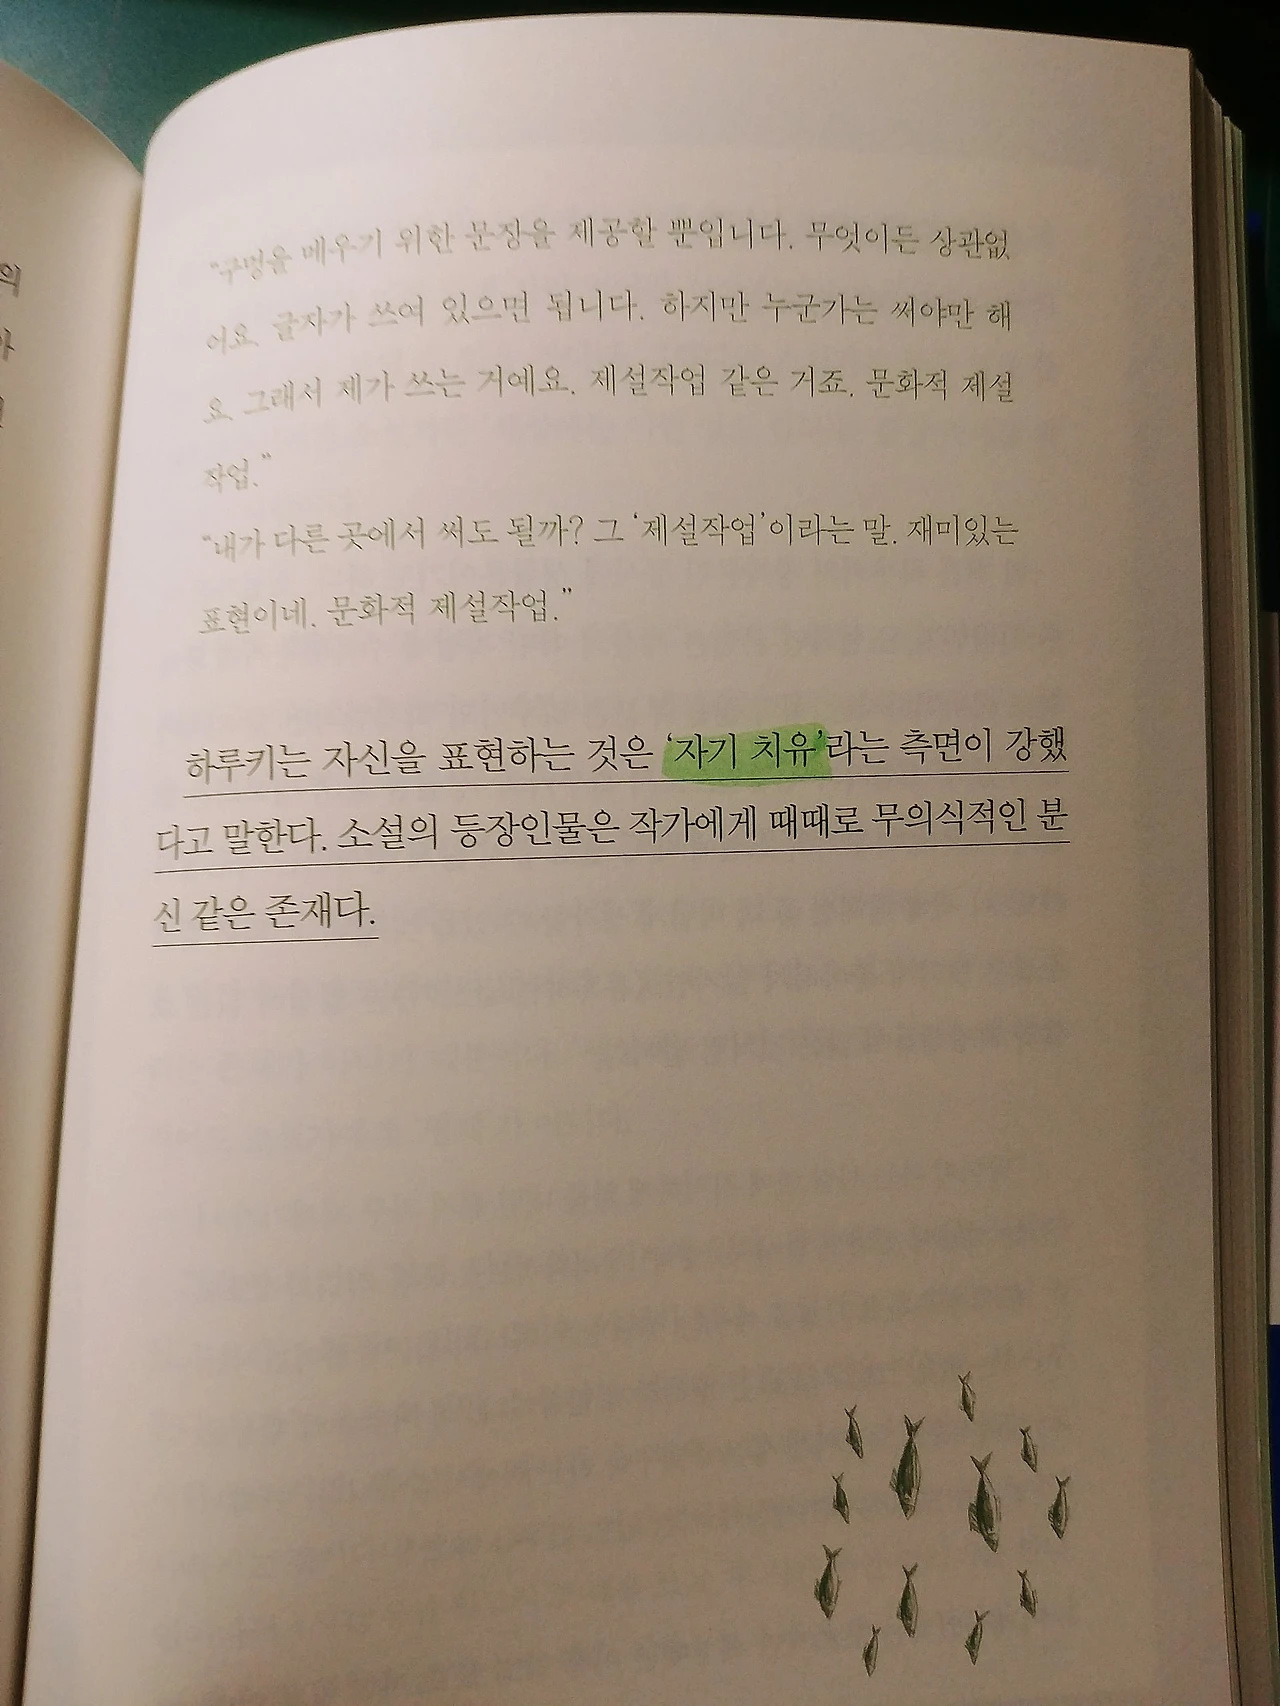 의
"구멍을 메우기 위한 문장을 제공할 뿐입니다. 무엇이든 상관없
어요. 글자가 쓰여 있으면 됩니다. 하지만 누군가는 써야만 해
요. 그래서 제가 쓰는 거예요. 제설작업 같은 거죠. 문화적 제설
작업."
"내가 다른 곳에서 써도 될까? 그 '제설작업'이라는 말. 재미있는
표현이네. 문화적 제설작업."
하루키는 자신을 표현하는 것은 '자기 치유'라는 측면이 강했
다고 말한다. 소설의 등장인물은 작가에게 때때로 무의식적인 분
신 같은 존재다.